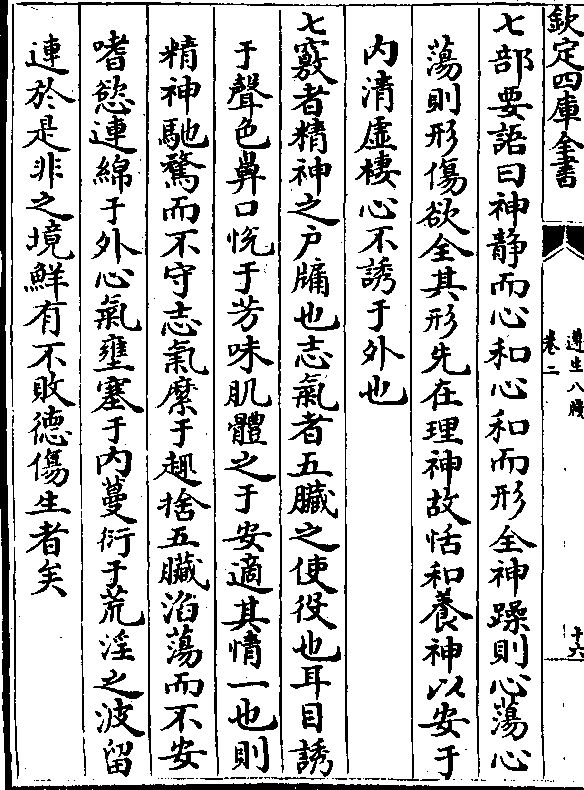 欽定四庫全書
遵生八牋
卷二
十六
七部要語曰神静而心和心和而形全神躁則心蕩心
蕩則形傷欲全其形先在理神故恬和養神以安于
内清虚棲心不誘于外也
七竅者精神之户牖也志氣者五臟之使役也耳目誘
于聲色鼻口恱于芳味肌體之于安適其情一也則
精神馳騖而不守志氣縻于趣捨五臟滔蕩而不安
嗜慾連綿于外心氣壅塞于内蔓衍于荒淫之波留
連於是非之境鮮有不敗德傷生者矣